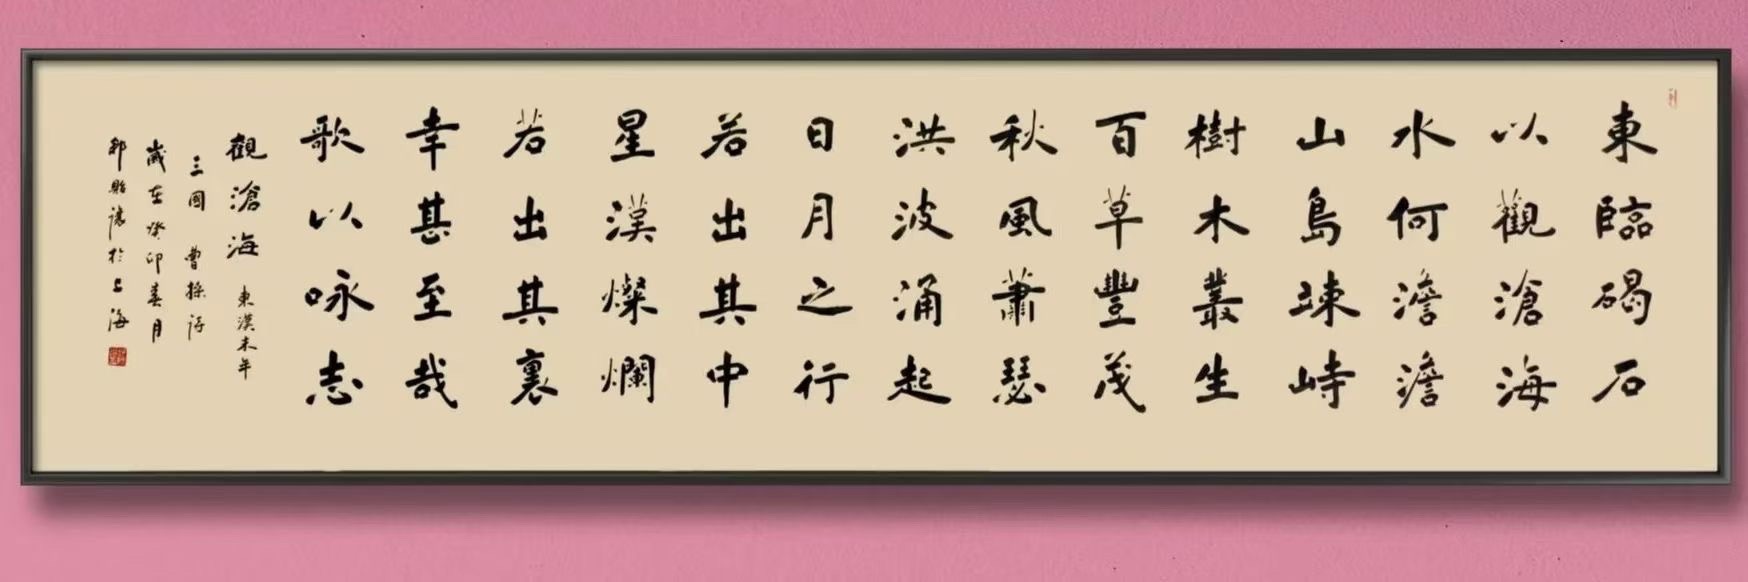 東臨碣石
以觀滄海
水何澹澹
山島竦峙
樹木叢生
百草豐茂
秋風蕭瑟
洪波涌起
日月之行
若出其中
星漢燦爛
若出其裏
幸甚至哉
歌以咏志
觀滄海 東漢末年
三國 曹操詩
歲在癸卯春月
於上海